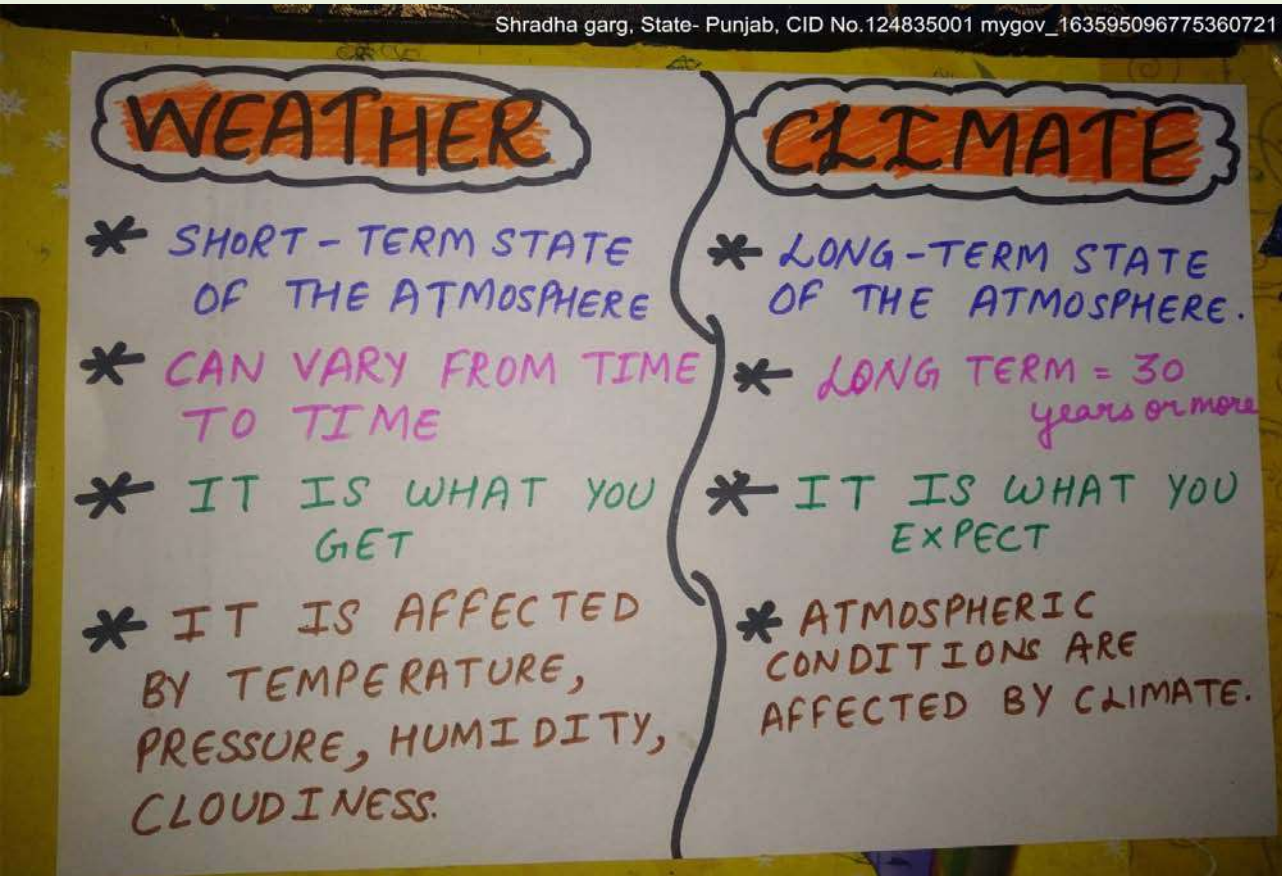 Shradha garg, State- Punjab, CID No.124835001 mygov_163595096775360721
WEATHER
* SHORT-TERM STATE
OF THE ATMOSPHERE
* CAN VARY FROM TIME
TO TIME
* IT IS WHAT YOU
GET
* IT IS AFFECTED
BY TEMPERATURE,
PRESSURE, HUMIDITY,
CLOUDINESS.
CLIMATE
* LONG-TERM STATE
OF THE ATMOSPHERE.
* LONG TERM = 30
years or more
* IT IS WHAT YOU
EXPECT
* ATMOSPHERIC
CONDITIONS ARE
AFFECTED BY CLIMATE.